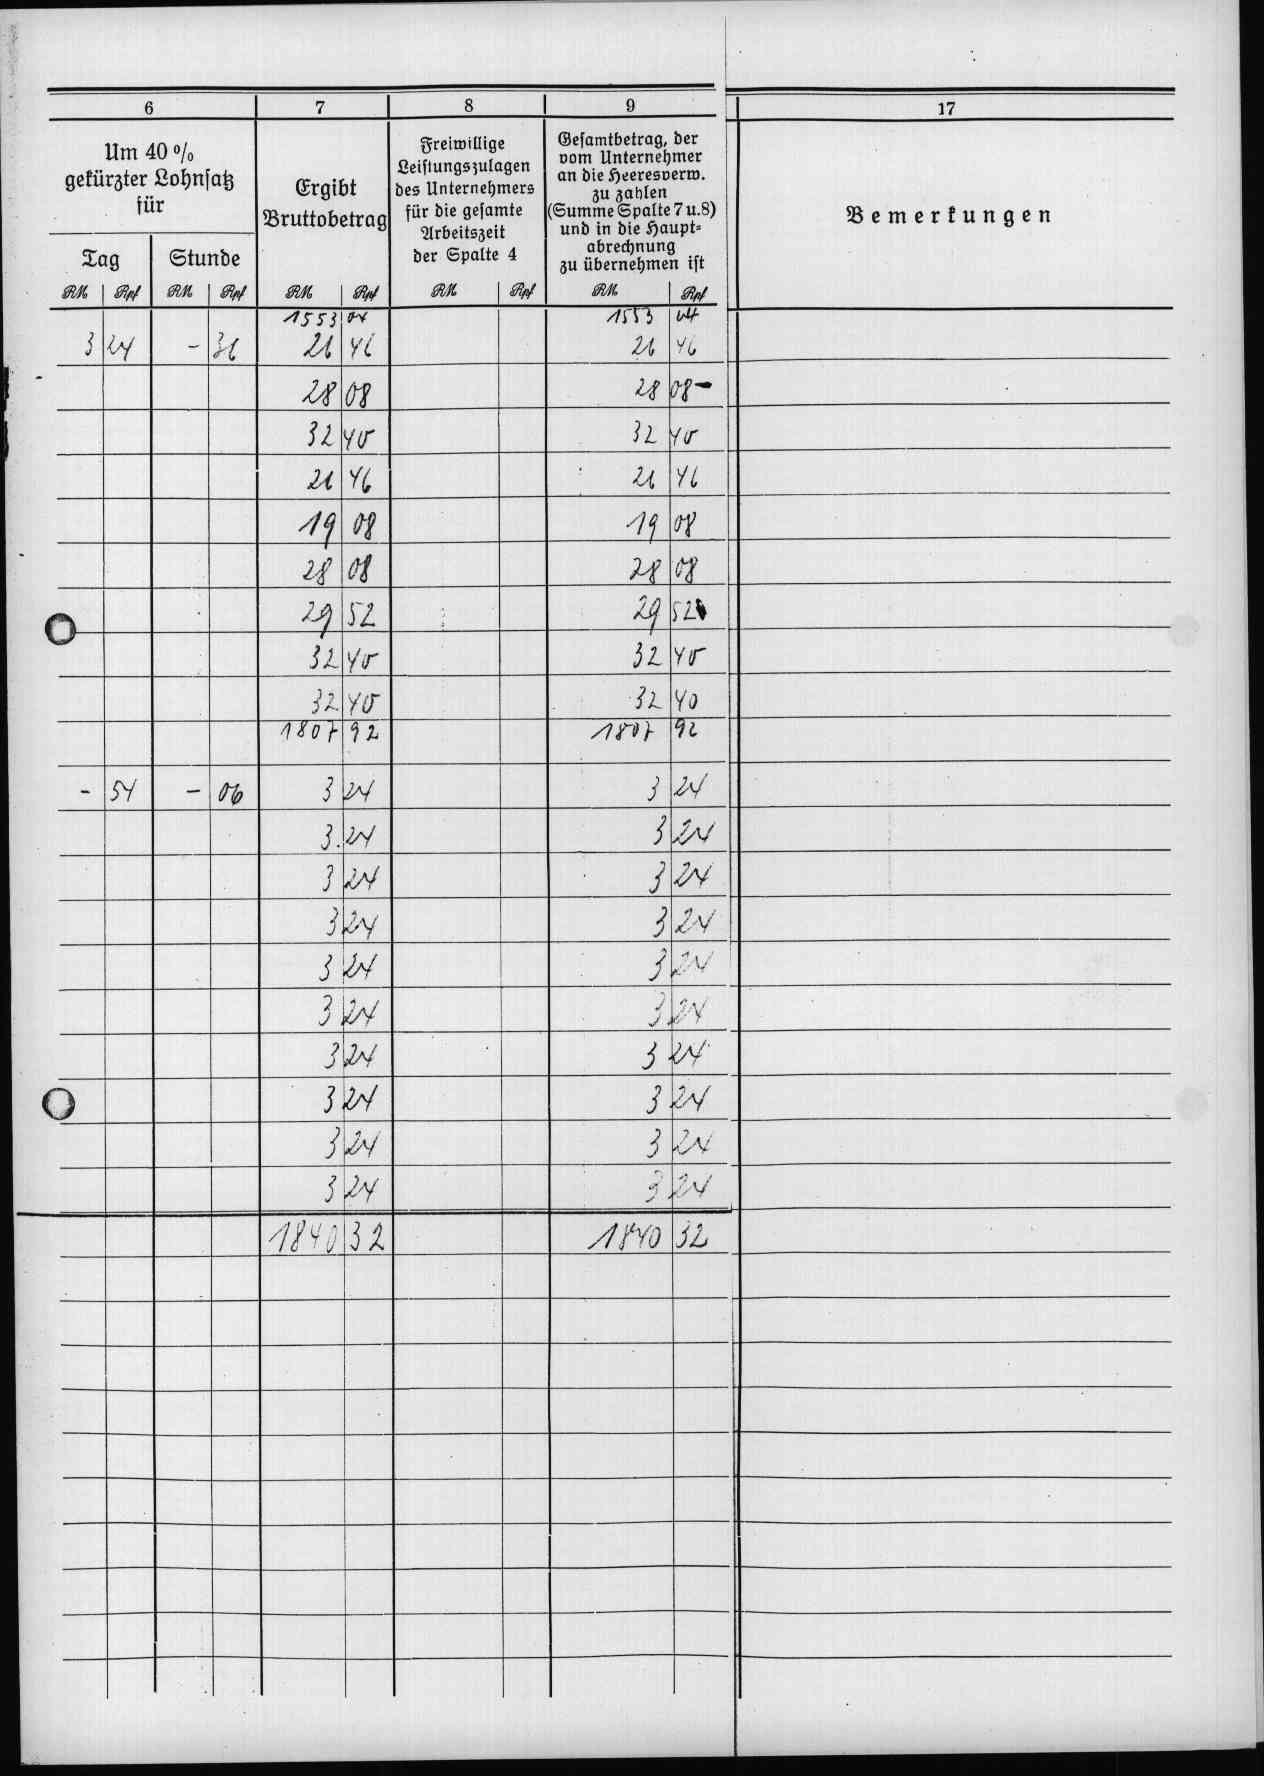 6 7 8 9 17
Um 40 %
gekürzter Lohnsatz
für
Tag Stunde
Ergibt
Bruttobetrag
Freiwillige
Leistungszulagen
des Unternehmers
für die gesamte
Arbeitszeit
der Spalte 4
Gesamtbetrag, der
vom Unternehmer
an die Heeresverw.
zu zahlen
(Summe Spalte 7 u. 8)
und in die Haupt=
abrechnung
zu übernehmen ist
Bemerkungen
RM Rpf RM Rpf RM Rpf RM Rpf RM Rpf
1553 04 1553 04
3 24 - 36 26 46 26 46
28 08 28 08 -
32 40 32 40
26 46 26 46
19 08 19 08
28 08 28 08
29 52 29 52
32 40 32 40
32 40 32 40
1807 92 1807 92
- 54 - 06 3 24 3 24
3.24 3 24
3 24 3 24
3 24 3 24
3 24 3 24
3 24 3 24
3 24 3 24
3 24 3 24
3 24 3 24
3 24 3 24
1840 32 1840 32